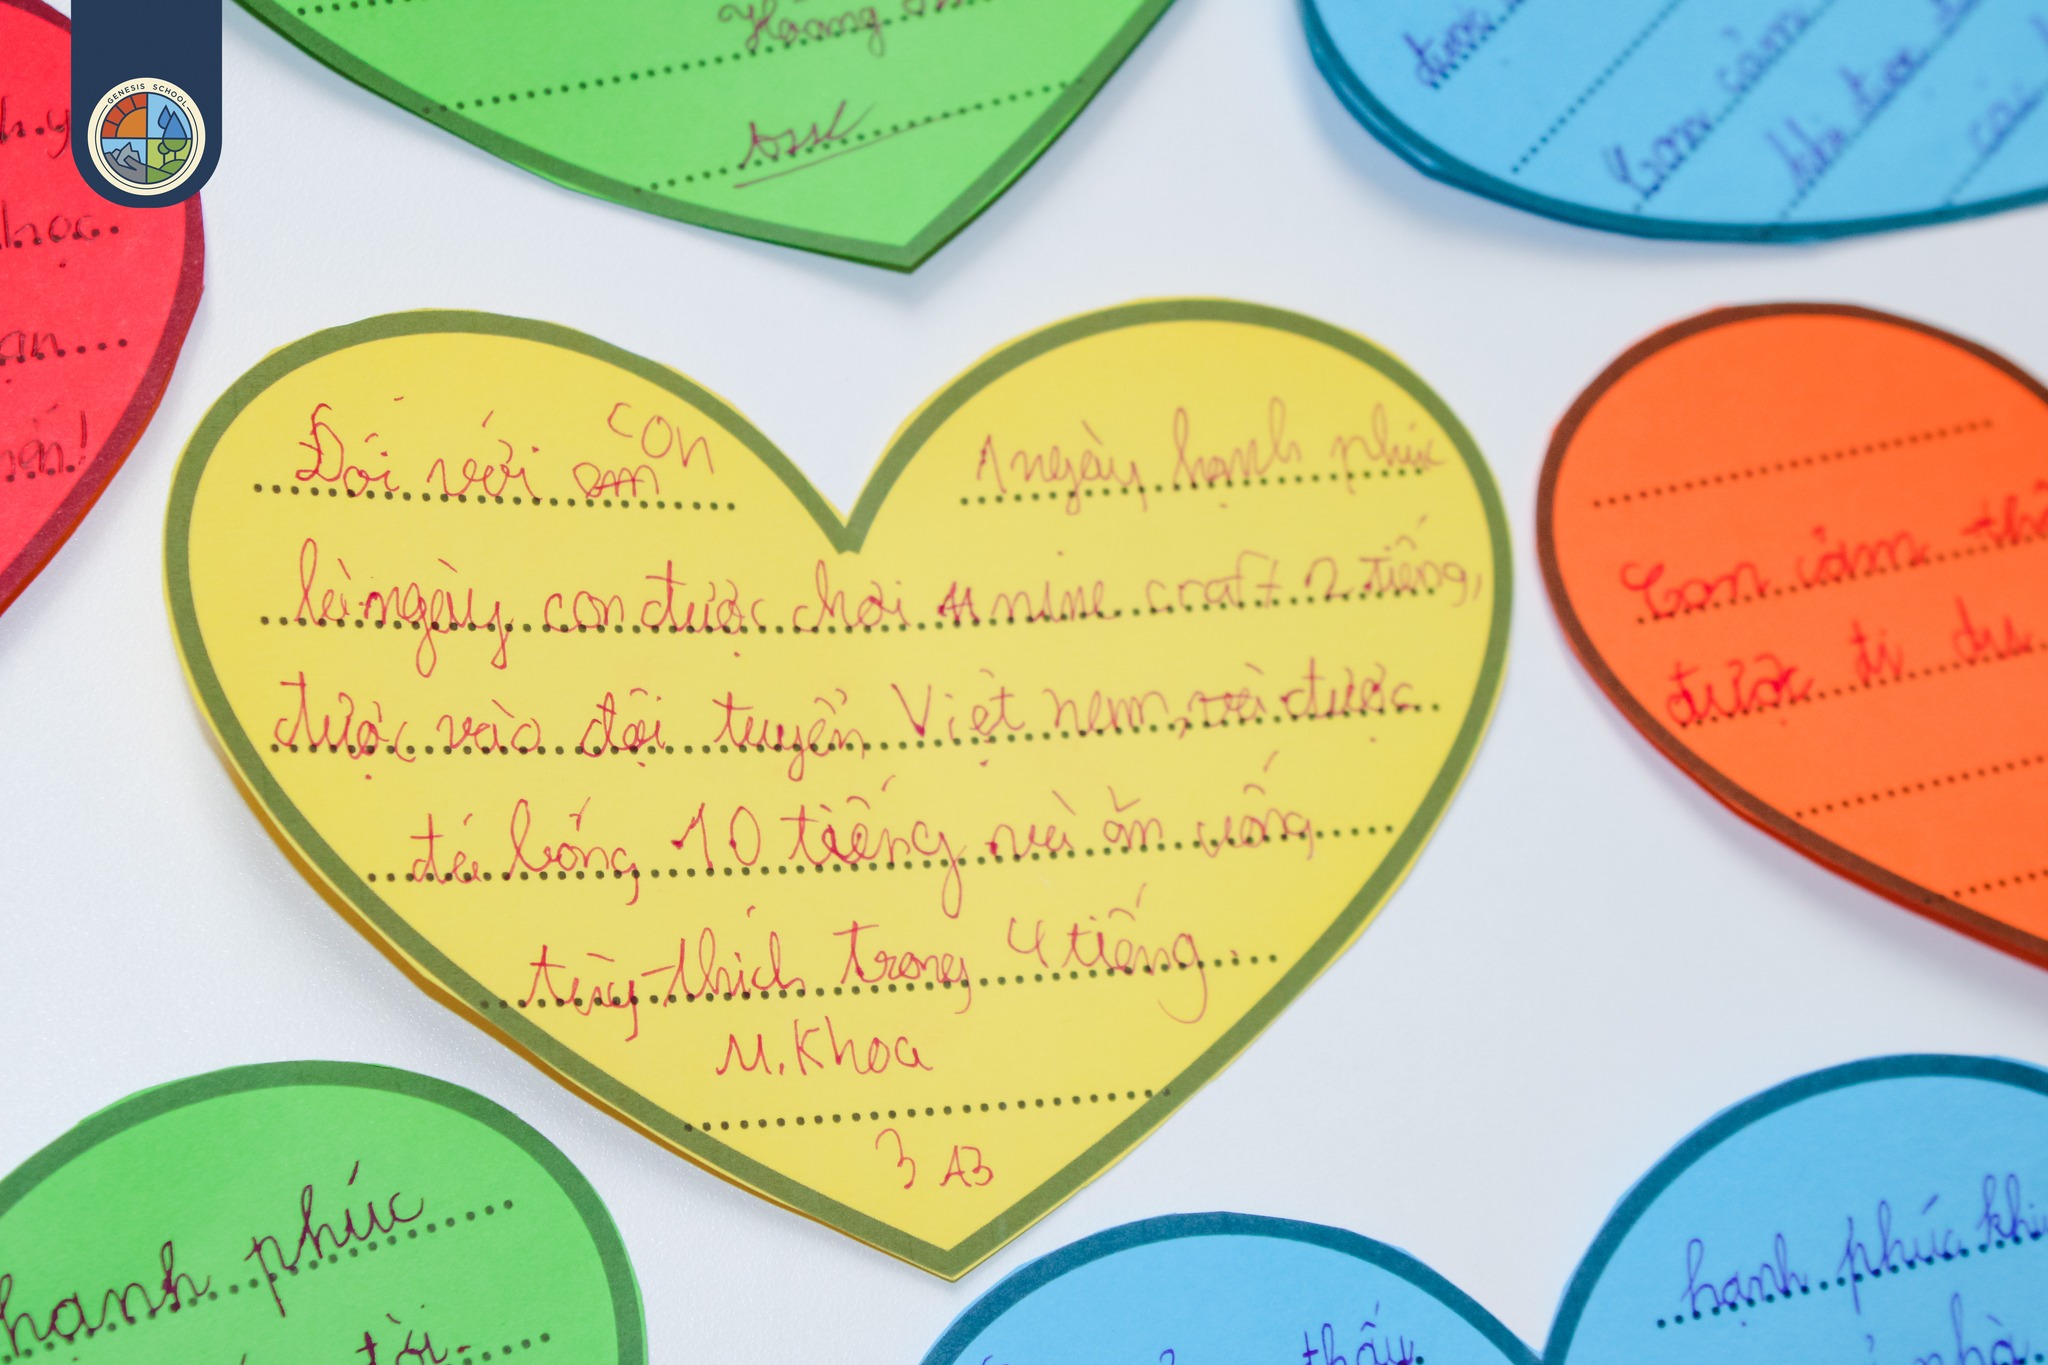 GENESIS SCHOOL
học.
Hoàng
được
Con cảm
khi
Đối với con 1 ngày hạnh phúc
là ngày con được chơi mine craft 2 tiếng,
được vào đội tuyển Việt nam, và được
đá bóng 10 tiếng và ăn uống
tùy thích trong 4 tiếng.
M. Khoa
3 A3
Con cảm
được đi du
hạnh phúc
thấy
hạnh phúc khi
nhà